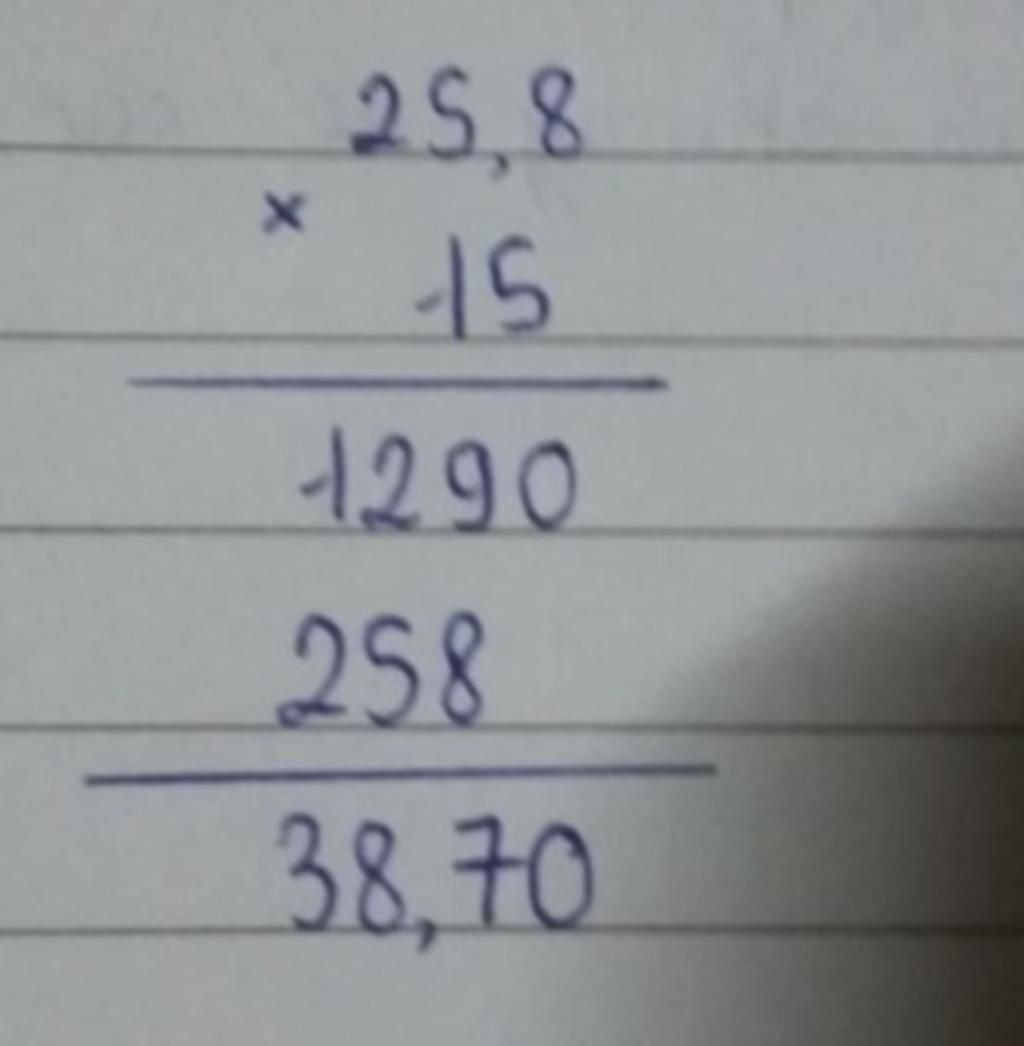 25,8
×
15
1290
258
38,70